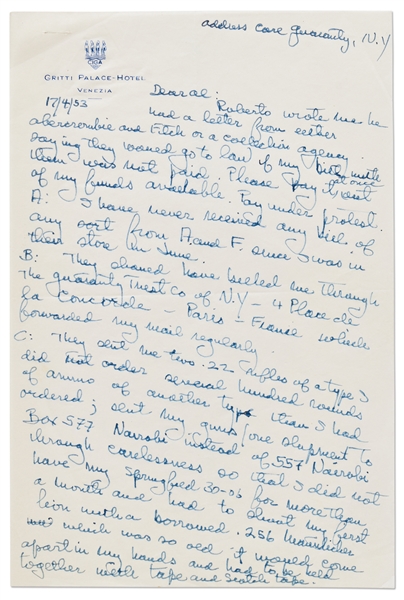 address care guaranty, N.Y
CIGA
GRITTI PALACE-HOTEL
VENEZIA
17/4/53
Dear al:
Roberto wrote me he
had a letter from either
abercrombie and Fitch or a collection agency
saying they would go to law if my bill with
them was not paid. Please pay it out
at once
of my funds available. Pay under protest.
A: I have never received any bill of
any sort from A. and F. since I was in
their store in June.
B: They should have billed me through
The guaranty Trust Co of N.Y - 4 Place de
la Concorde - Paris - France which
forwarded my mail regularly.
C: They sent me two .22 rifles of a type I
did not order several hundred rounds
of ammo of another type than I had
ordered; sent my guns (one shipment to
Box 577 Nairobi instead of 557 Nairobi
through carelessness so that I did not
have my Springfield 30-06 for more than
a month and had to shoot my first
lion with a borrowed .256 Mannlicher
which was so old it would come
apart in my hands and had to be held
together with tape and scotch tape.